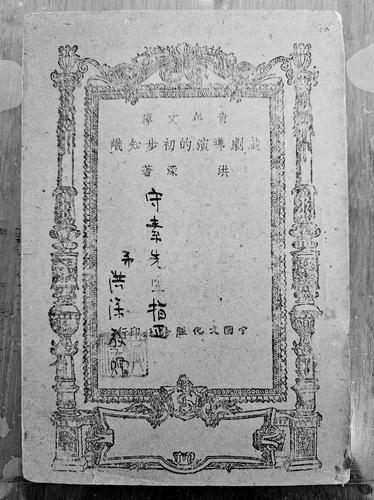 青年文庫
戲劇導演的初步知識
洪深著
守素先生指正
弟洪深敬贈
中國文化服務社印行